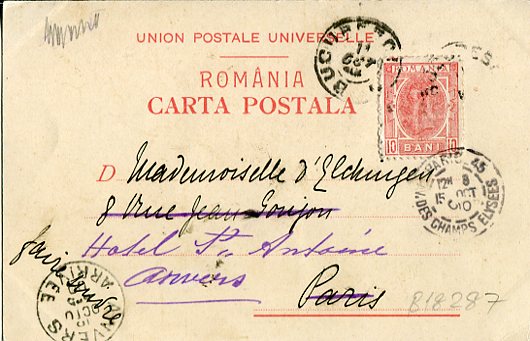 UNION POSTALE UNIVERSELLE
ROMÂNIA
CARTA POSTALA
BUCUREȘCI
11
ROMANIA
10 BANI 10
D Mademoiselle d'Elchingen
8 Rue Jean Goujon
Hotel St. Antoine
Anvers
Paris
faire suivre
PARIS 45
12H 8
15 OCT
00
AV. DES CHAMPS ELISÉES
ANVERS
ARRIVÉE
OCTO
818287